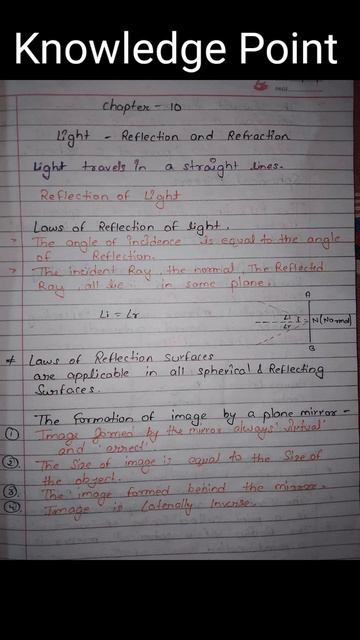 Knowledge Point
Chapter - 10
Light - Reflection and Refraction
Light travels in a straight lines.
Reflection of Light
Laws of Reflection of light.
> The angle of incidence is equal to the angle
of Reflection.
> The incident Ray, the normal, The Reflected
Ray, all lie in same plane.
Li = Lr
A
Li
Lr
N(Normal)
B
* Laws of Reflection Surfaces
are applicable in all spherical & Reflecting
Surfaces.
The formation of image by a plane mirror -
① Image formed by the mirror always 'virtual'
and 'errect'.
② The Size of image is equal to the Size of
the object.
③ The image formed behind the mirror.
④ Image is Latenally Inverse.